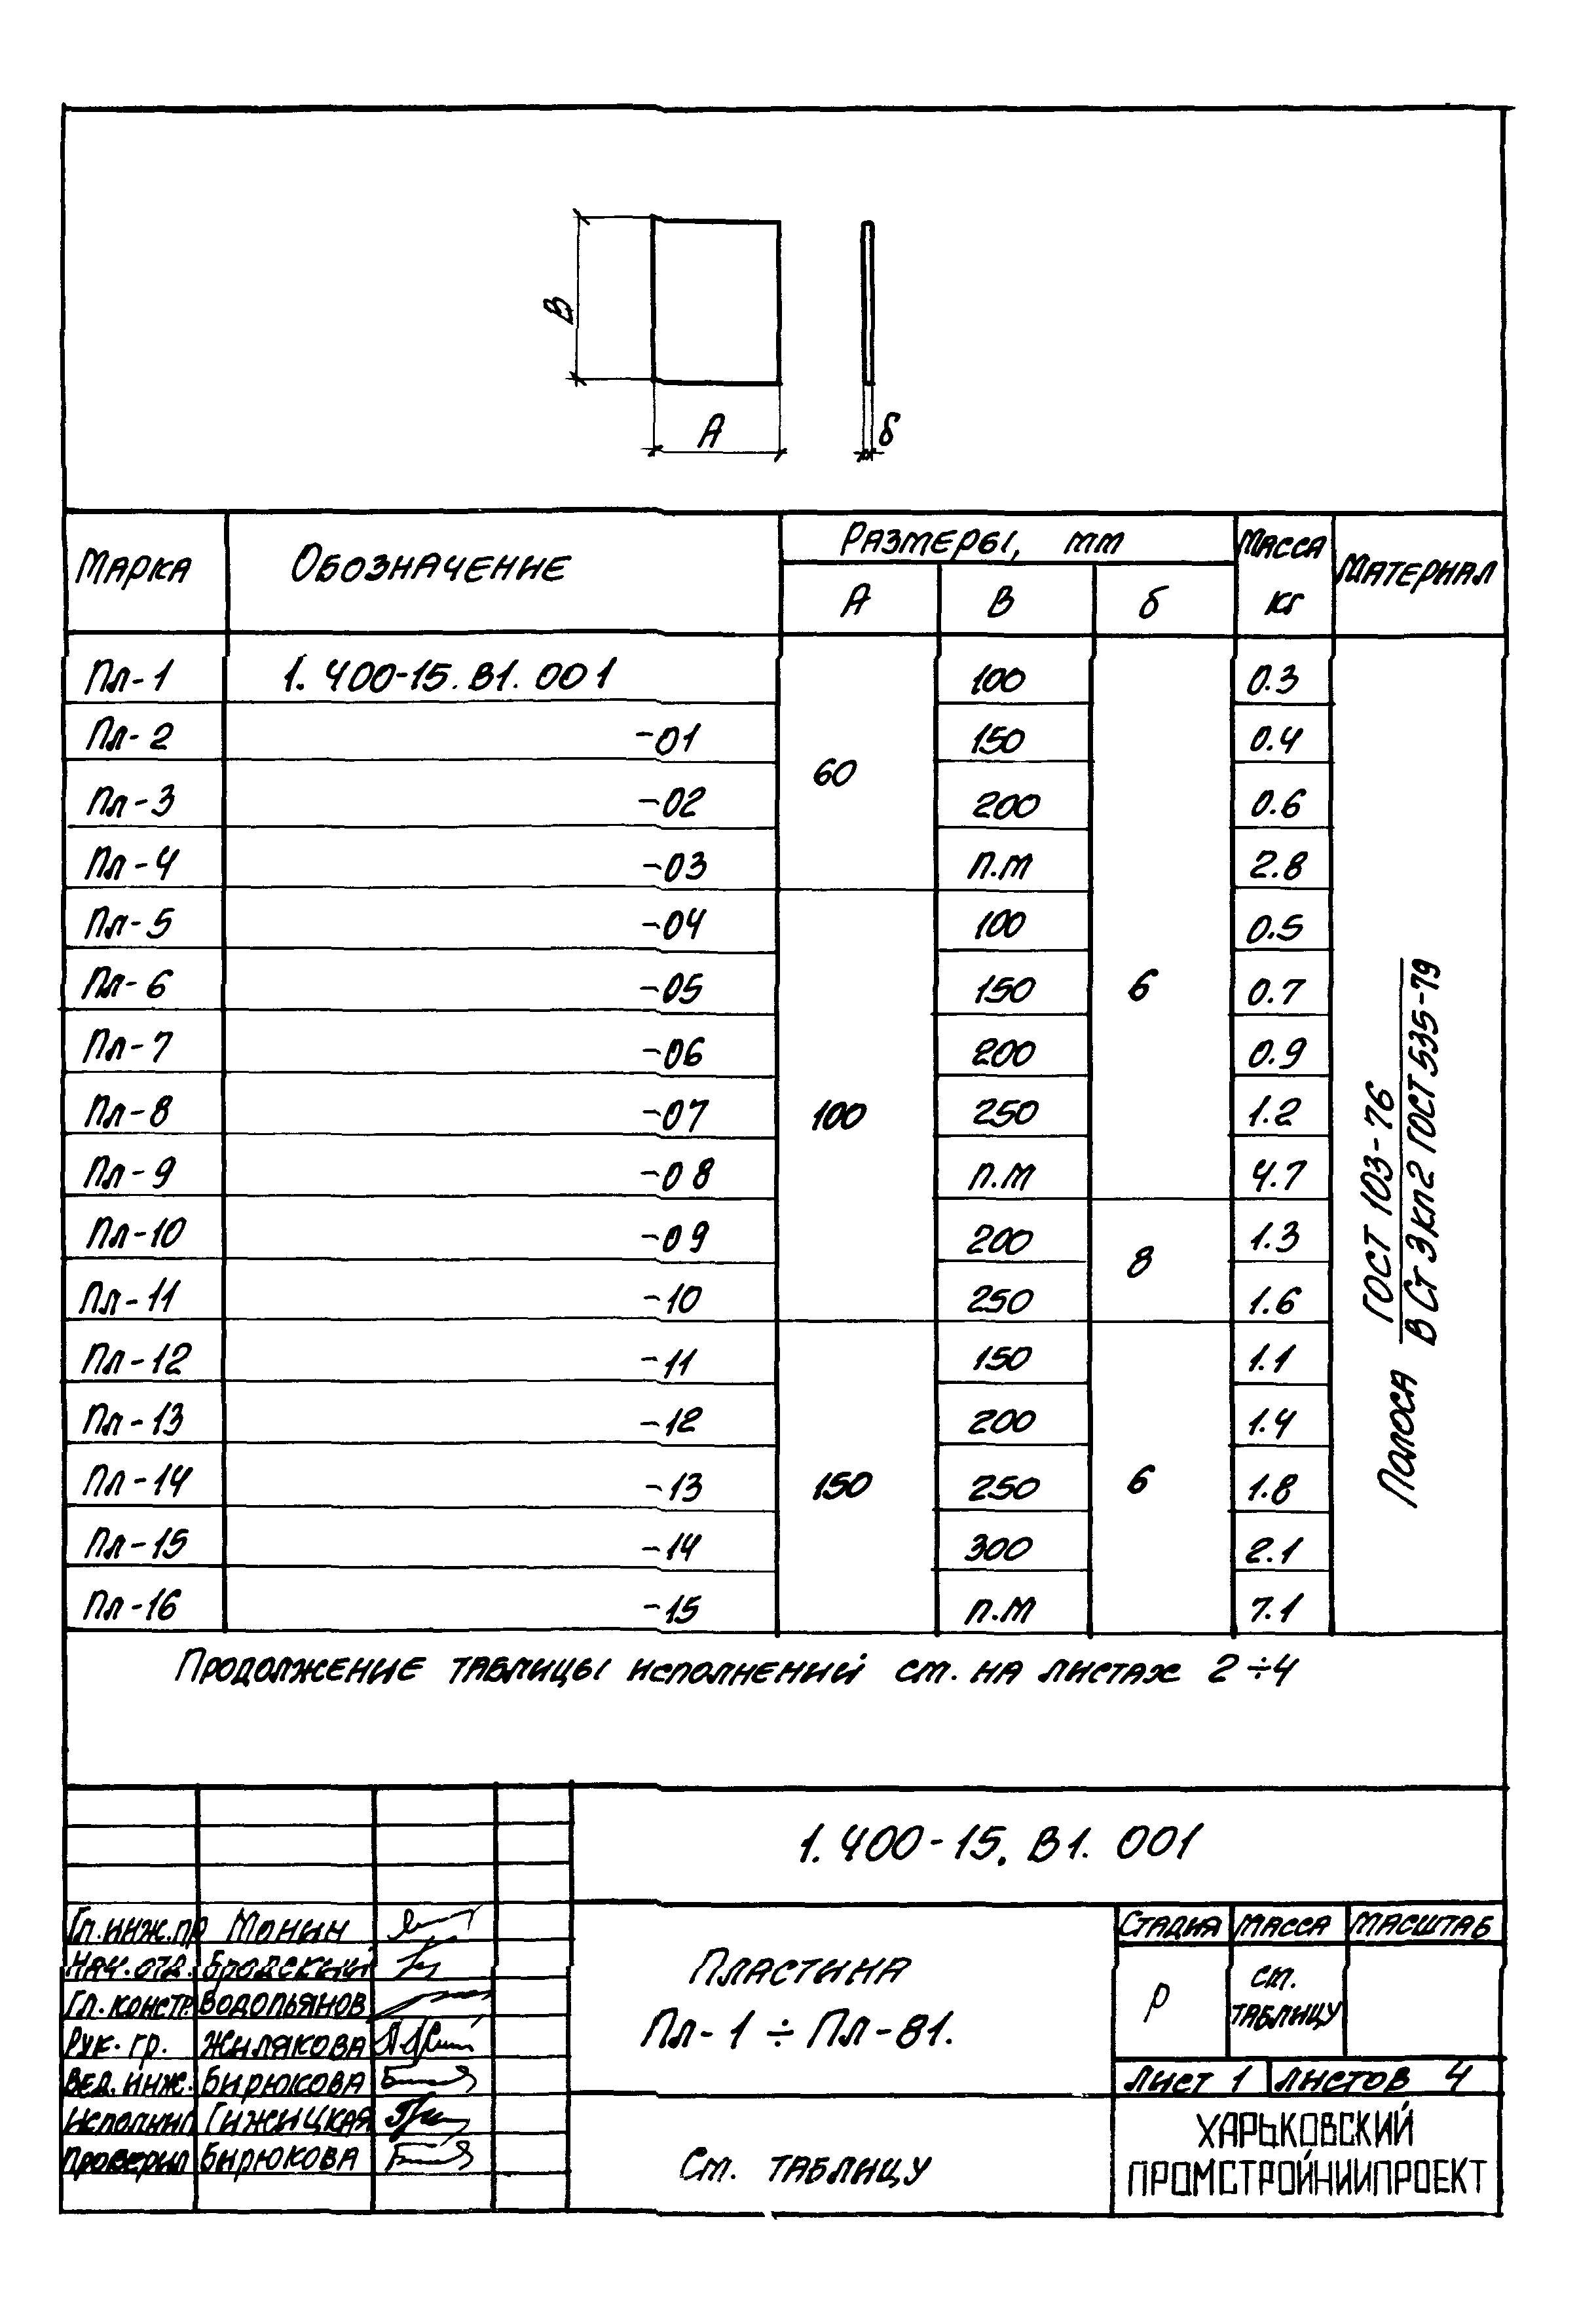 В
А
б
Марка Обозначение Размеры, мм Масса кг Материал
А В б
Пл-1 1.400-15.В1.001 60 100 6 0.3
Пл-2 -01 150 0.4
Пл-3 -02 200 0.6
Пл-4 -03 п.м 2.8
Пл-5 -04 100 100 0.5
Пл-6 -05 150 0.7
Пл-7 -06 200 0.9
Пл-8 -07 250 1.2
Пл-9 -08 п.м 4.7
Пл-10 -09 200 8 1.3
Пл-11 -10 250 1.6
Пл-12 -11 150 150 6 1.1
Пл-13 -12 200 1.4
Пл-14 -13 250 1.8
Пл-15 -14 300 2.1
Пл-16 -15 п.м 7.1
Полоса ГОСТ 103-76
В Ст 3 кп2 ГОСТ 535-79
Продолжение таблицы исполнений см. на листах 2÷4
1.400-15.В1.001
Гл.инж.пр Монин
Нач.отд. Бродский
Гл.констр. Водопьянов
Рук.гр. Жилякова
Вед.инж. Бирюкова
Исполнил Гижицкая
Проверил Бирюкова
Пластина
Пл-1 ÷ Пл-81.
См. таблицу
Стадия Масса Масштаб
Р см. таблицу
Лист 1 Листов 4
ХАРЬКОВСКИЙ
ПРОМСТРОЙНИИПРОЕКТ